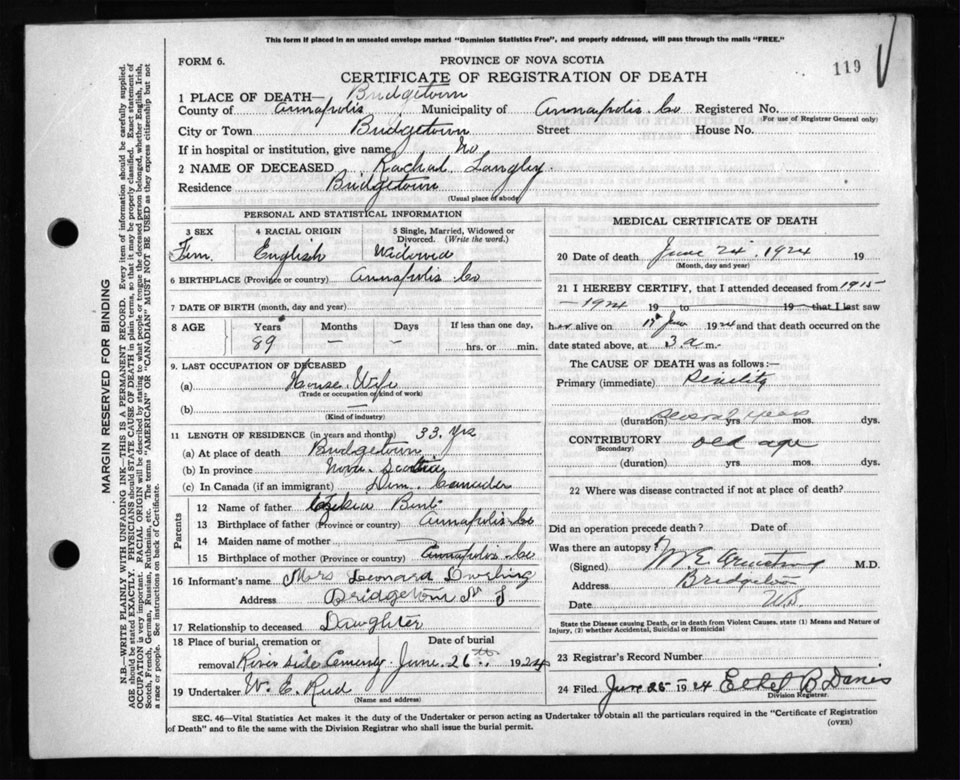 This form if placed in an unsealed envelope marked "Dominion Statistics Free", and properly addressed, will pass through the mails "FREE."
FORM 6.
PROVINCE OF NOVA SCOTIA
119
CERTIFICATE OF REGISTRATION OF DEATH
1 PLACE OF DEATH— Bridgetown
County of Annapolis Municipality of Annapolis Co Registered No.
(For use of Registrar General only)
City or Town Bridgetown Street House No.
If in hospital or institution, give name No
2 NAME OF DECEASED Rachel Langley
Residence Bridgetown
(Usual place of abode)
PERSONAL AND STATISTICAL INFORMATION
3 SEX 4 RACIAL ORIGIN 5 Single, Married, Widowed or Divorced. (Write the word.)
Fem. English Widowed
6 BIRTHPLACE (Province or country) Annapolis Co
7 DATE OF BIRTH (month, day and year)
8 AGE Years Months Days If less than one day,
89 — — hrs. or min.
9. LAST OCCUPATION OF DECEASED
(a) House Wife
(Trade or occupation or kind of work)
(b) —
(Kind of industry)
11 LENGTH OF RESIDENCE (in years and months) 33 Yrs
(a) At place of death Bridgetown
(b) In province Nova Scotia
(c) In Canada (if an immigrant) Dom. Canada
Parents
12 Name of father
13 Birthplace of father (Province or country) Annapolis Co
14 Maiden name of mother —
15 Birthplace of mother (Province or country) Annapolis Co
16 Informant's name Mrs Leonard
Address Bridgetown N S
17 Relationship to deceased Daughter
18 Place of burial, cremation or Date of burial
removal River side Cemetery June 26th 1924
19 Undertaker W. E. Reed
(Name and address)
MEDICAL CERTIFICATE OF DEATH
20 Date of death June 24, 1924 19
(Month, day and year)
21 I HEREBY CERTIFY, that I attended deceased from 1915
- 1924 19 to 19 that I last saw
her alive on 17th June 1924 and that death occurred on
the date stated above, at 3 a m.
The CAUSE OF DEATH was as follows:
Primary (immediate) Senility
(duration) several years yrs. mos. dys.
CONTRIBUTORY old age
(Secondary)
(duration) yrs. mos. dys.
22 Where was disease contracted if not at place of death?
Did an operation precede death? Date of
Was there an autopsy?
(Signed) M E Armstrong M.D.
Address Bridgetown
Date
State the Disease causing Death, or in death from Violent Causes, state (1) Means and Nature of Injury, (2) whether Accidental, Suicidal or Homicidal
23 Registrar's Record Number
24 Filed June 25 1924 Ethel B Danis
Division Registrar.
SEC. 46—Vital Statistics Act makes it the duty of the Undertaker or person acting as Undertaker to obtain all the particulars required in the "Certificate of Registration of Death" and to file the same with the Division Registrar who shall issue the burial permit.
(OVER)
MARGIN RESERVED FOR BINDING
N.B.—WRITE PLAINLY WITH UNFADING INK—THIS IS A PERMANENT RECORD. Every item of information should be carefully supplied.
AGE should be stated EXACTLY. PHYSICIANS should STATE CAUSE OF DEATH in plain terms, so that it may be properly classified. Exact statement of
OCCUPATION is very important. RACIAL ORIGIN will be described by stating to what people or tongue the deceased person belonged, whether English, Irish,
Scotch, French, German, Russian, Ruthenian, etc. The terms "AMERICAN" OR "CANADIAN" MUST NOT BE USED as they express citizenship but not
a race or people. See instructions on back of Certificate.